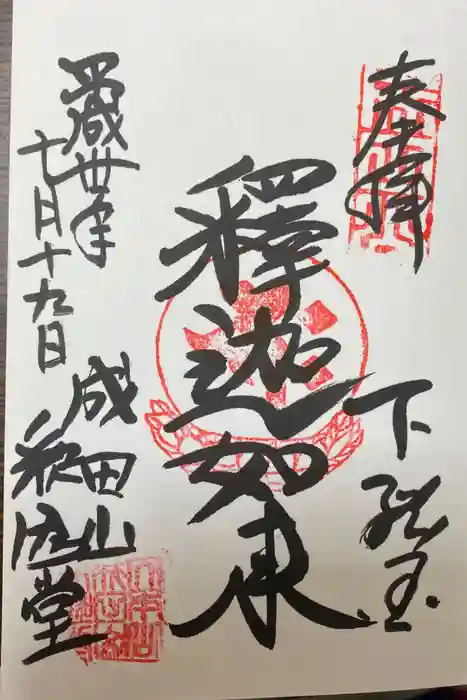 奉拝
下総国
釋迦如来
平成卅年
七月十九日
成田山
釈迦堂